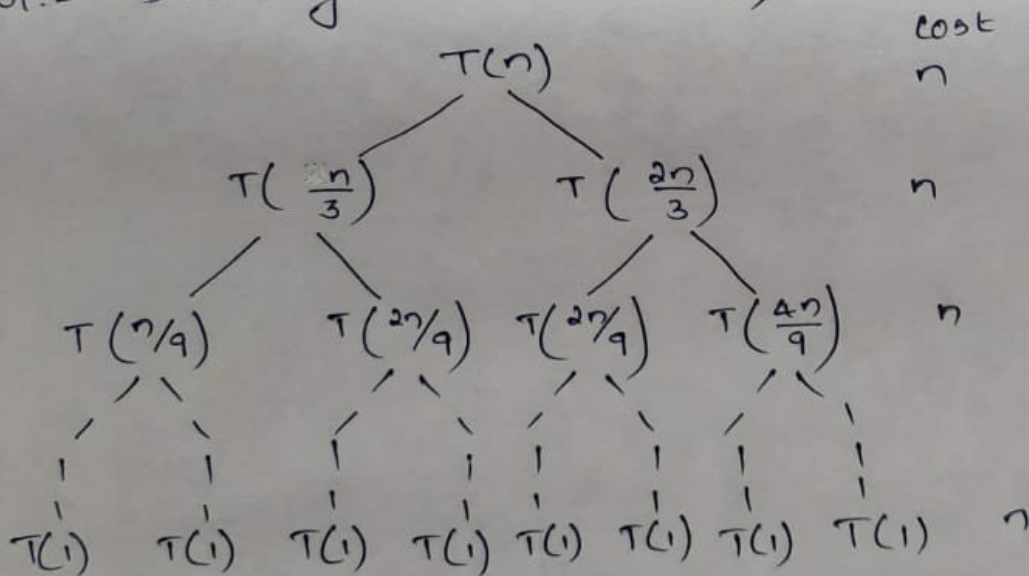 cost
T(n) n
T(n/3) T(2n/3) n
T(n/9) T(2n/9) T(2n/9) T(4n/9) n
T(1) T(1) T(1) T(1) T(1) T(1) T(1) T(1) n